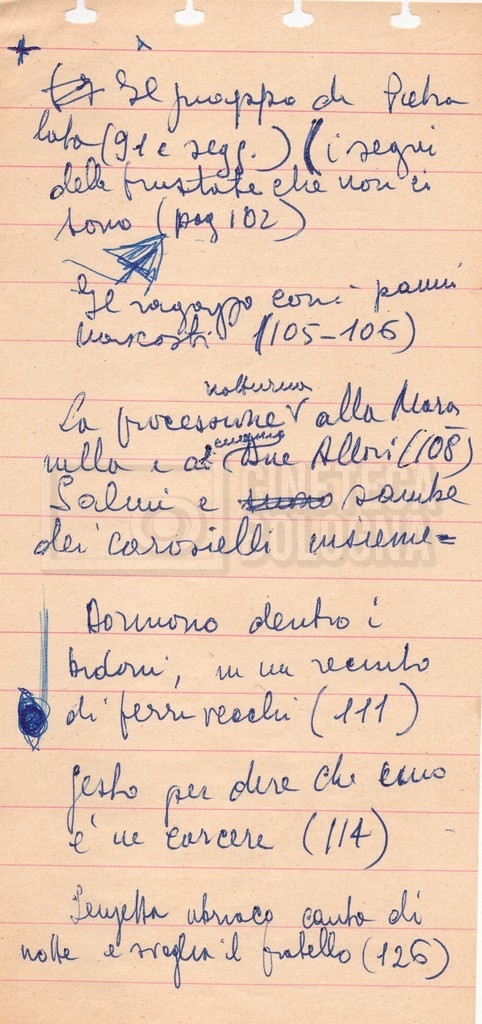 Il guappo di Pietra
lata (91 e segg.) (i segni
delle frustate che non ci
sono (pag 102)
Il ragazzo con i panni
nascosti (105-106)
notturna
La processione alla Mara
nella e ai Due Allori (108)
Salmi e sambe
dei caroselli insieme=
Dormono dentro i
bidoni, in un recinto
di ferri vecchi (111)
gesto per dire che uno
è in carcere (114)
Lenzetta ubriaco canta di
notte e sveglia il fratello (126)
CINETECA
BOLOGNA